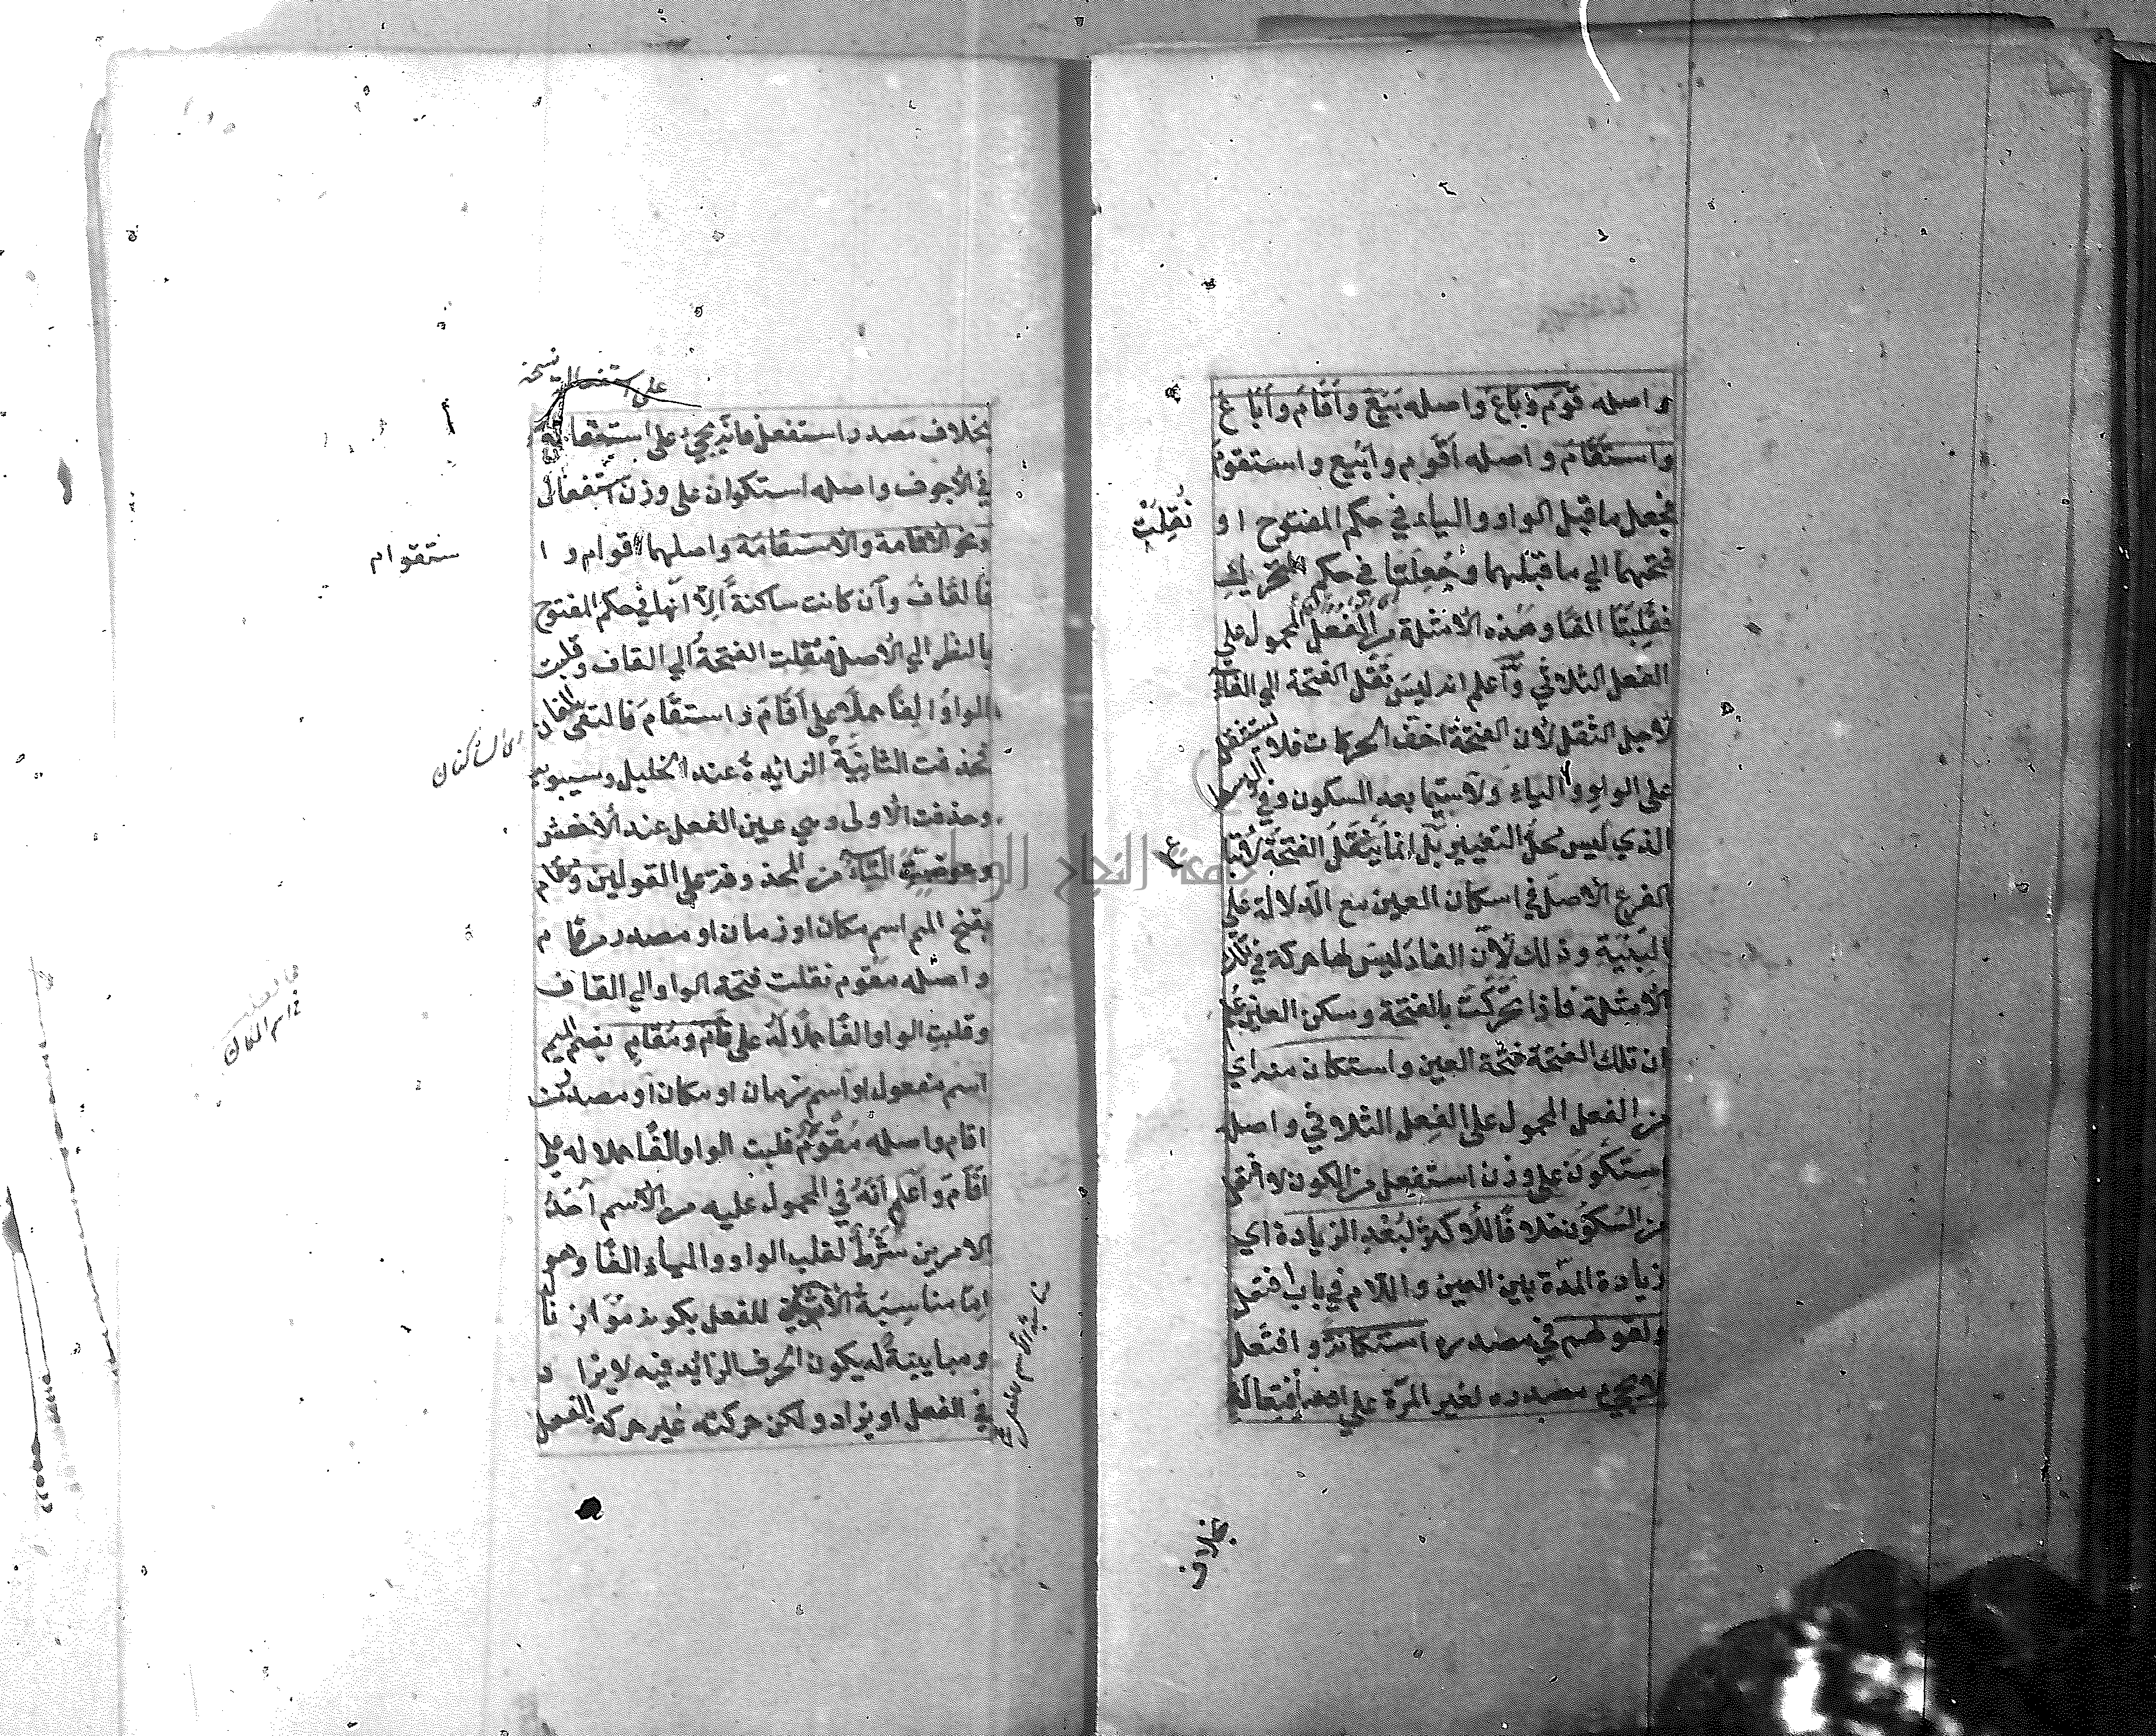 واصله قَوَمَ وبَاعَ واصله بَيَعَ وأقَامَ وأبَاعَ
واستَقَامَ واصله أقْوَم وأبْيَع واستقوَمَ
فجعل ما قبل الواو والياء في حكم المفتوح او
نُقِلَتْ
فتحهما الي ما قبلهما وجُعِلَتا في حكم المتحريك
فقُلِبَتَا الفًا وهذه الامثلة من الفعل المحمول على
الفعل الثلاثي واعلم انه ليسَ نَقْل الفتحة الي الفاء
لاجل الثقل لان الفتحة اخف الحركات فلا يستثقل
على الواو والياء ولا سيّما بعد السكون وفي الوسط
الذي ليس محلّ التغيير بل إنما يُنْقَلُ الفتحة لاتباع
الفرع الاصل في اسكان العين مع الدلالة على
البِنْيَة وذلك لأن الفاء ليس لها حركة في تلك
الامثلة فاذا تحركت بالفتحة وسكن العين عُلِمَ
ان تلك الفتحة فتحة العين واستكان منه اي
من الفعل المحمول على الفعل الثلاثي واصله
اسْتَكْوَنَ على وزن استفعل من الكون لا افتعل
من السكون خلافًا للأكثر لبُعْدِ الزيادة اي
زيادة المدّة بين العين واللام في باب افتعل
ولقولهم في مصدره استكانة وافتعل
لا يجيء مصدره لغير المرّة على افتعالة
بخلاف
على استفعالة نسخه
بخلاف مصدر استفعل فانّه يجيء على استفعالة
في الأجوف واصله استكوان على وزن استفعال
ونحو الاقامة والاستقامة واصلهما اقوام و ا
ستقوام
فالقاف وان كانت ساكنة إلا انها في حكم المفتوح
بالنظر الي الاصل فنقلت الفتحة الي القاف وقلبت
الواوُ الفًا حملًا على أقَامَ واستقَامَ فالتقى الفان
اى الساكنان
فحذفت الثانية الزائدة عند الخليل وسيبويه
وحذفت الأولى وهي عين الفعل عند الأخفش
وعوضت التاء من المحذوفة على القولين ومقام
بفتح الميم اسم مكان او زمان او مصدر من قام
واصله مقوم نقلت فتحة الواو الي القاف
وقلبت الواو الفًا حملًا له على قام ومُقام بضم الميم
اسم مفعول او اسم زمان او مكان او مصدر من
اقام واصله مُقْوَم قلبت الواو الفًا حملا له على
أقَامَ واعلم انّهُ في المحمول عليه من الاسم أحَدُ
الامرين شرْطٌ لقلب الواو والياء الفًا وهو
امّا مناسبَة للفعل بكونه موازنًا
ومباينة له بكون الحرف الزائد فيه لا يزاد
في الفعل او يزاد ولكن حركته غير حركة الفعل
في اسم المكان